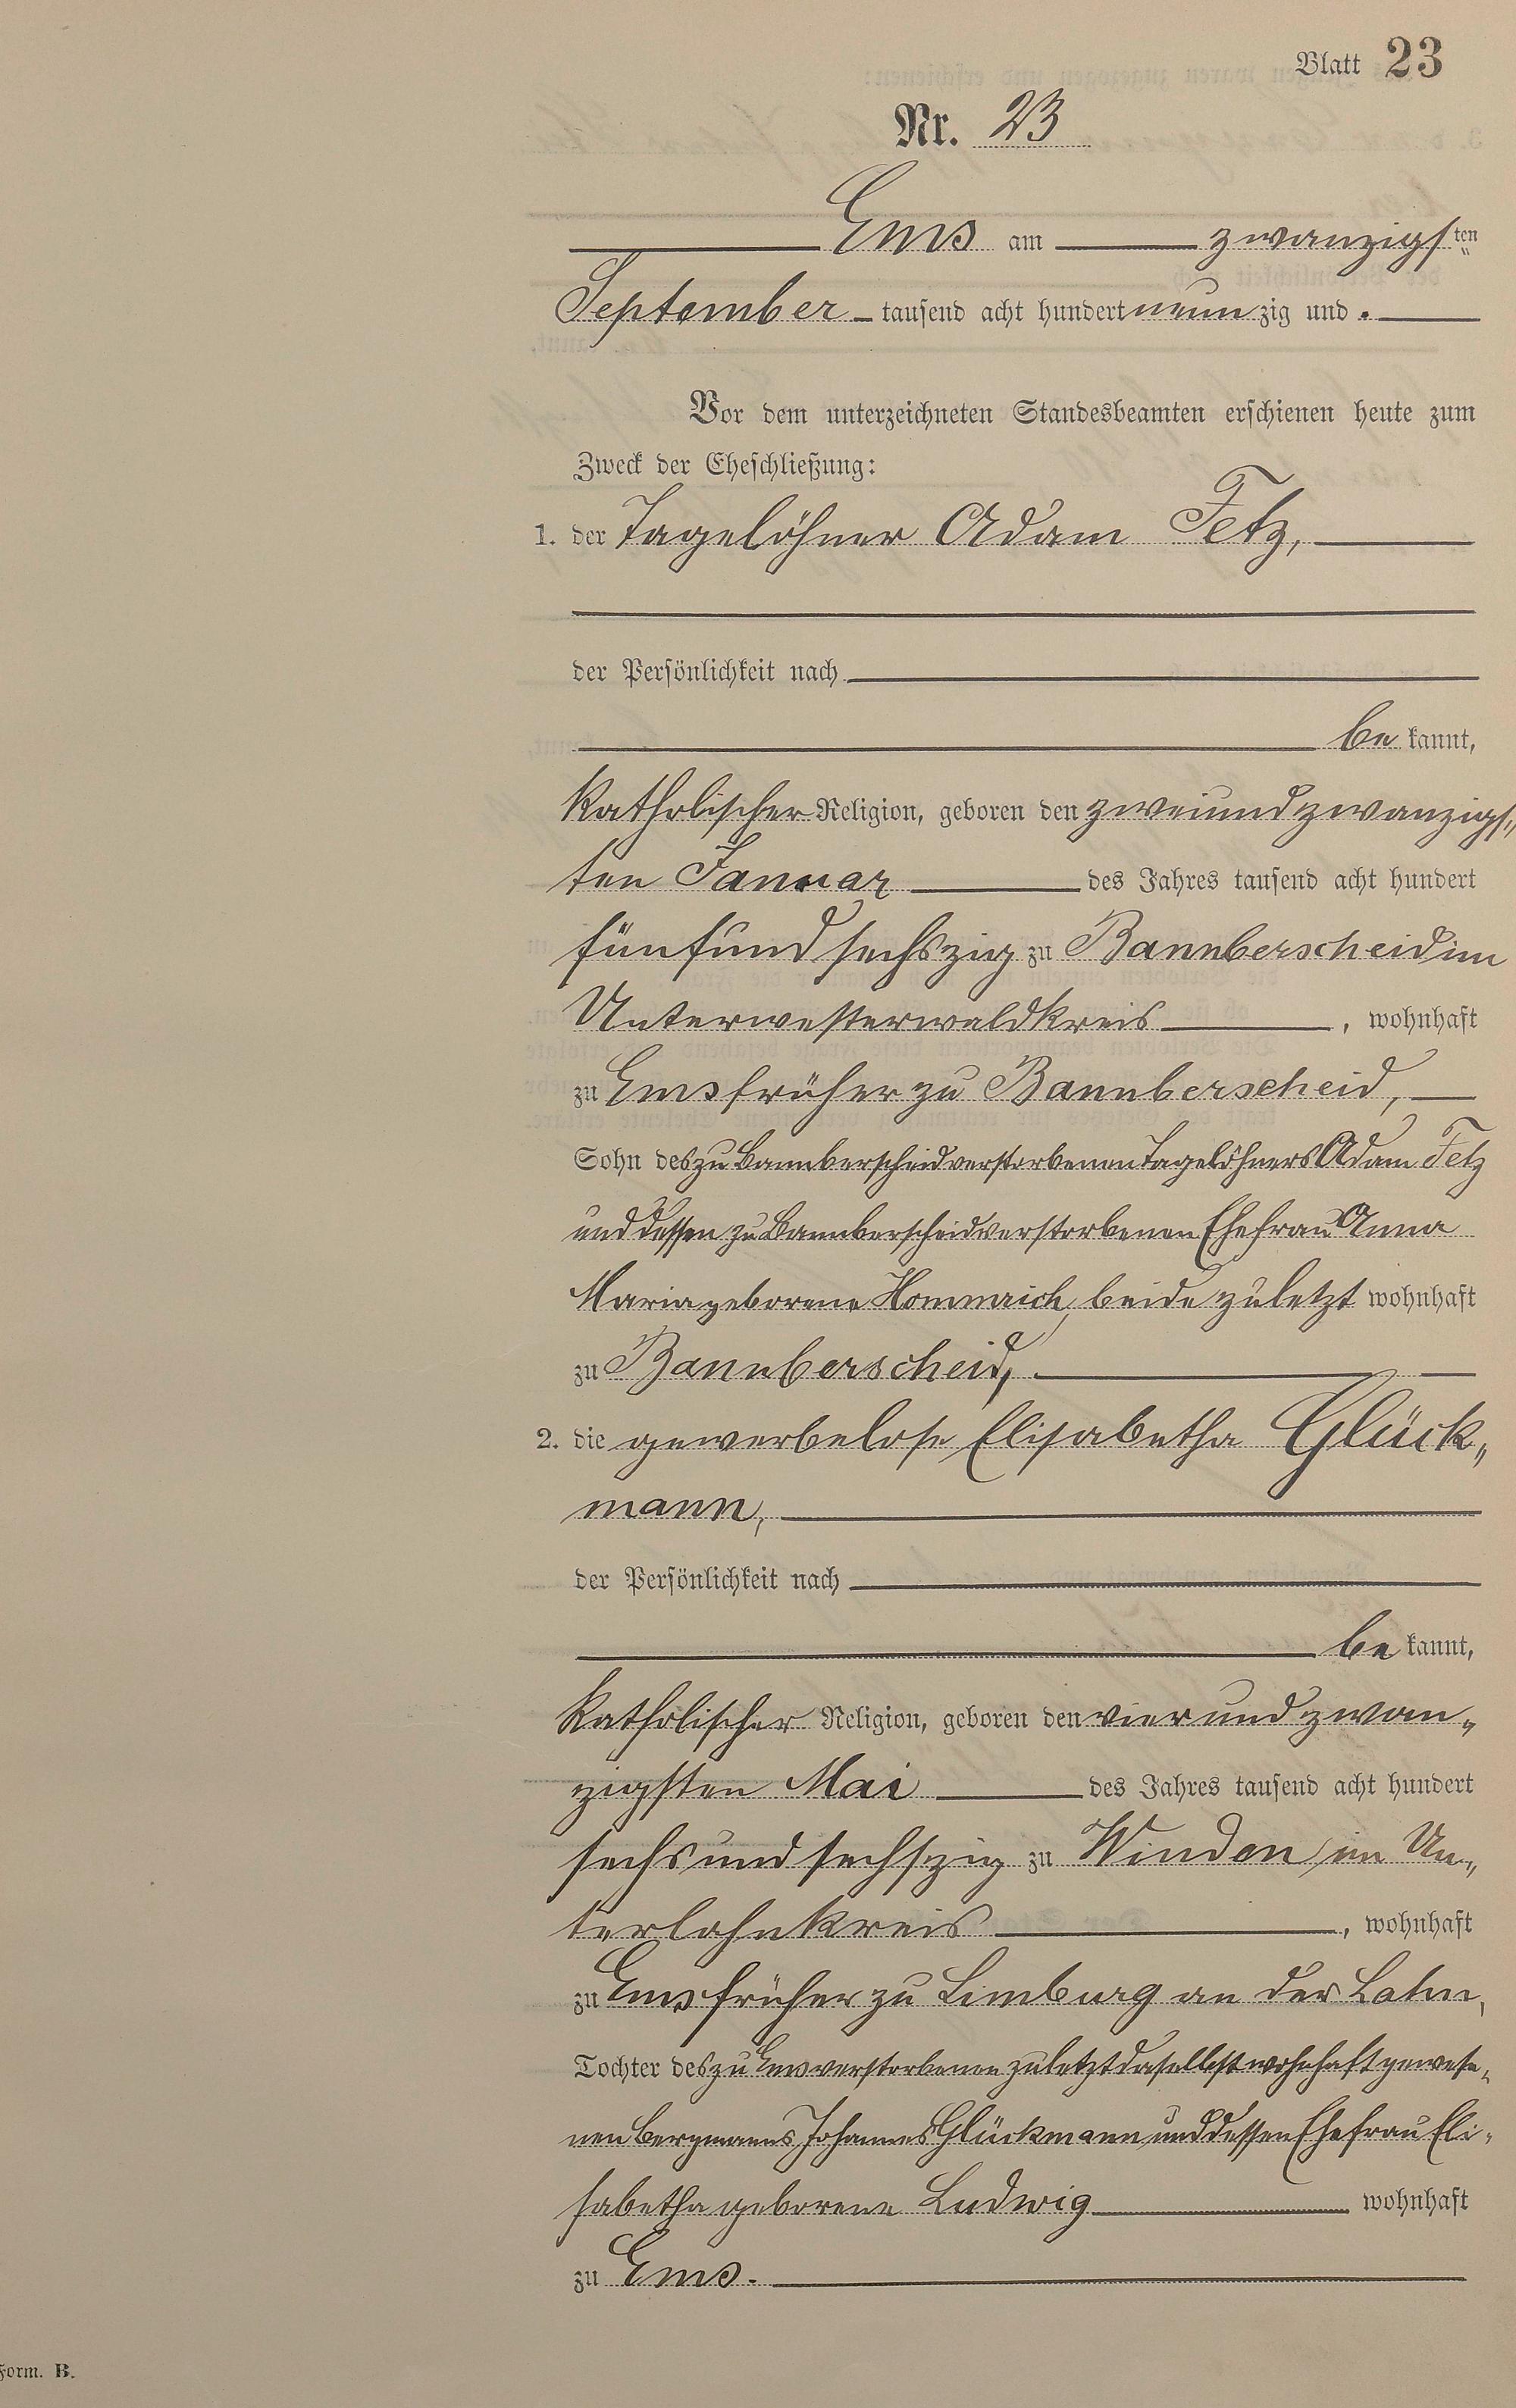 Blatt 23
Nr. 23
Ems am zwanzigsten
September tausend acht hundert neunzig und .
Vor dem unterzeichneten Standesbeamten erschienen heute zum
Zweck der Eheschließung:
1. der Tagelöhner Adam Fetz,
der Persönlichkeit nach
bekannt,
katholischer Religion, geboren den zweiundzwanzigs„
ten Januar des Jahres tausend acht hundert
fünfundsechszig zu Bannberscheid im
Unterwesterwaldkreis, wohnhaft
zu Ems früher zu Bannberscheid,
Sohn des zu Bannberscheid verstorbenen Tagelöhners Adam Fetz
und dessen zu Bannberscheid verstorbenen Ehefrau Anna
Maria geborene Hommrich, beide zuletzt wohnhaft
zu Bannberscheid,
2. die gewerbelose Elisabetha Glück„
mann,
der Persönlichkeit nach
bekannt,
katholischer Religion, geboren den vierundzwan„
zigsten Mai des Jahres tausend acht hundert
sechsundsechszig zu Winden im Un„
terlahnkreis, wohnhaft
zu Ems früher zu Limburg an der Lahn,
Tochter des zu Ems verstorbenen zuletzt daselbst wohnhaft gewese„
nen Bergmanns Johannes Glückmann und dessen Ehefrau Eli„
sabetha geborene Ludwig wohnhaft
zu Ems.
Form. B.